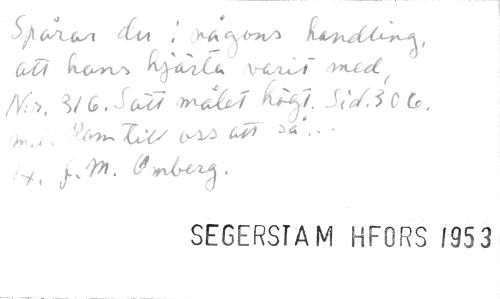 Spårar du i någons handling,
att hans hjärta varit med,
N:r. 316. Sätt målet högt. Sid. 306.
mel. Kom till oss att så...
J. M. Omberg.
SEGERSTAM HFORS 1953